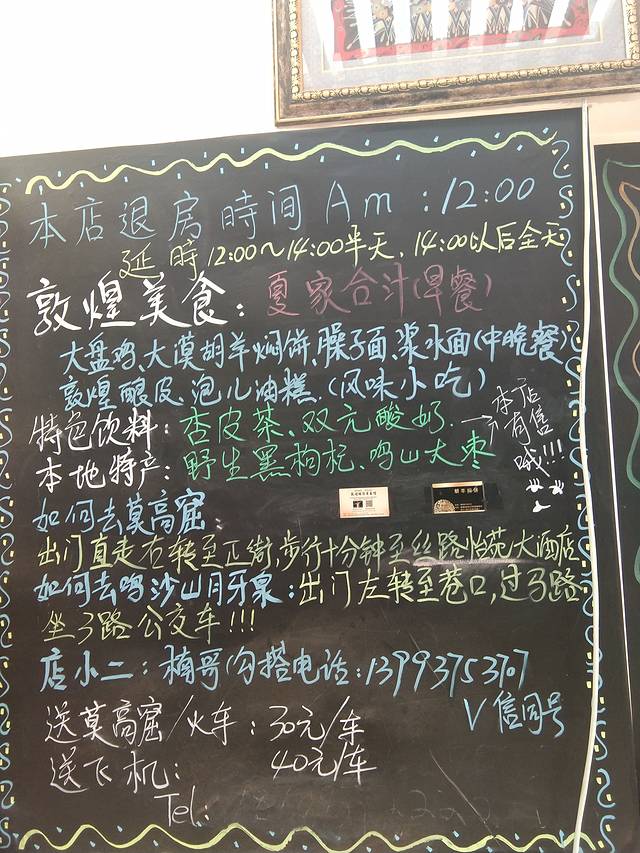 本店退房時间Am:12:00
延時12:00~14:00半天,14:00以后全天
敦煌美食:夏家合汁(早餐)
大盘鸡、大漠胡羊焖饼、臊子面、浆水面(中晚餐)
敦煌酿皮、泡儿油糕、(风味小吃)
特色饮料:杏皮茶、双元酸奶.→本店有售哦!!!
本地特产:野生黑枸杞、鸣山大枣
如何去莫高窟:
出门直走右转至正街,步行十分钟至丝路怡苑大酒店
如何去鸣沙山月牙泉:出门左转至巷口,过马路
坐3路公交车!!!
店小二:楠哥勾搭电话:13993753707
V信同号
送莫高窟/火车:30元/车
送飞机:40元/车
Tel: